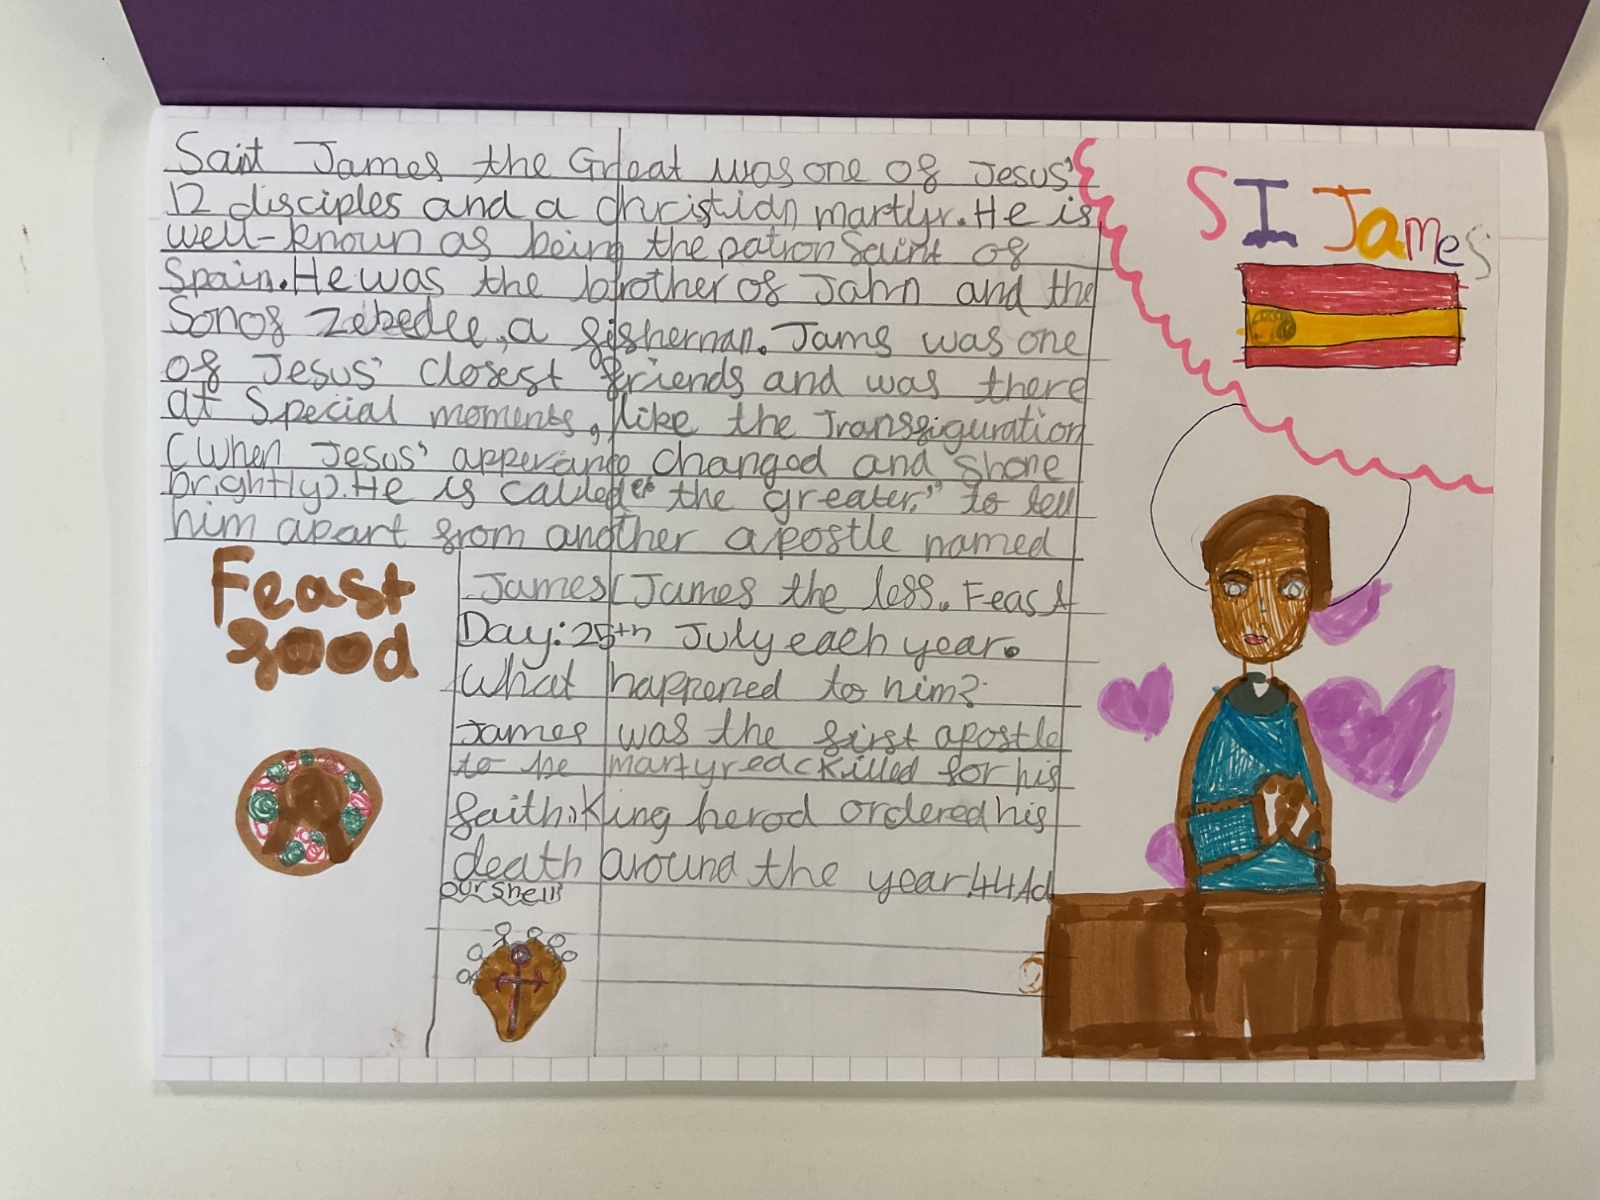 Saint James the Great was one of Jesus'
12 disciples and a christian martyr. He is
well-known as being the patron saint of
Spain. He was the brother of John and the
Son of Zebedee, a fisherman. Jams was one
of Jesus' closest friends and was there
at special moments, like the Transfiguration
(when Jesus' apperance changed and shone
brightly). He is called "the greater," to tell
him apart from another apostle named
James (James the less. Feast
Day: 25th July each year.
What happened to him?
James was the first apostle
to be killed for his
faith. King herod ordered his
death around the year 44 Ad
our shell
Feast
food
ST James